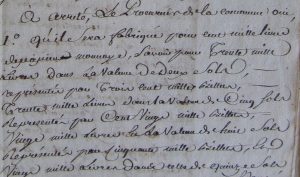 A arrêté, Le Procureur de la commune oui,
1° qu'il sera fabriqué pour cent mille livres
de papier monnoye, savoir pour Trente mille
Livres dans La Valeur de deux Sols,
représentés par Trois cent mille billets,
Trente mille Livres dans la valeur de Cinq sols
Représentés par Cent Vingt mille billets,
Vingt mille Livres la Valeur de huit Sols
Représentés par Cinquante mille Billets, Et
Vingt mille Livres dans celle de quinze Sols